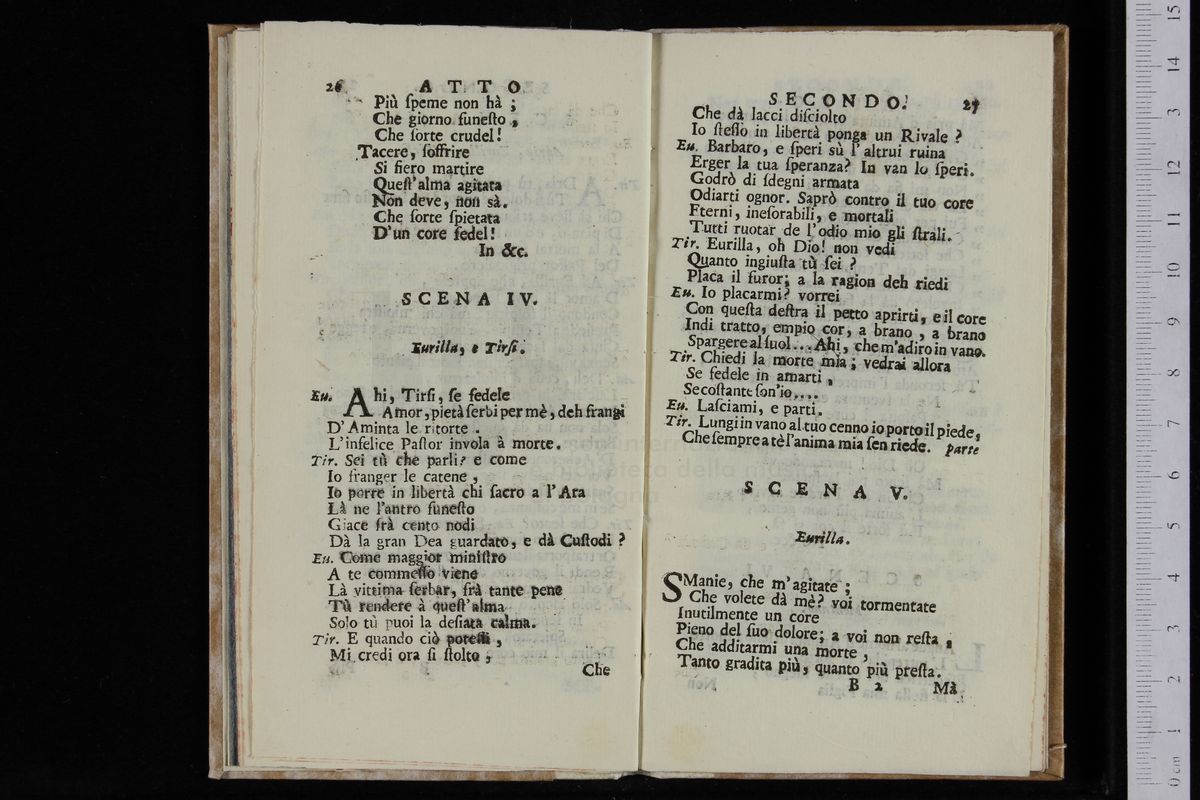 26 ATTO
Più ſpeme non hà ;
Che giorno funeſto ,
Che ſorte crudel!
Tacere, ſoffrire
Sì fiero martire
Queſt'alma agitata
Non deve, non sà.
Che ſorte ſpietata
D'un core fedel!
In &c.
SCENA IV.
Eurilla, e Tirſi.
Eu. Ahi, Tirſi, ſe fedele
Amor, pietà ſerbi per mè, deh frangi
D'Aminta le ritorte .
L'infelice Paſtor invola à morte.
Tir. Sei tù che parli? e come
Io franger le catene ,
Io porre in libertà chi ſacro a l'Ara
Là ne l'antro funeſto
Giace frà cento nodi
Dà la gran Dea guardato, e dà Cuſtodi ?
Eu. Come maggior miniſtro
A te commeſſo viene
Là vittima ſerbar, frà tante pene
Tù rendere à queſt'alma
Solo tù puoi la deſiata calma.
Tir. E quando ciò poteſſi ,
Mi credi ora ſi ſtolto ,
Che
SECONDO. 27
Che dà lacci diſciolto
Io ſteſſo in libertà ponga un Rivale ?
Eu. Barbaro, e ſperi sù l'altrui ruina
Erger la tua ſperanza? In van lo ſperi.
Godrò di ſdegni armata
Odiarti ognor. Saprò contro il tuo core
Fterni, ineſorabili, e mortali
Tutti ruotar de l'odio mio gli ſtrali.
Tir. Eurilla, oh Dio! non vedi
Quanto ingiuſta tù ſei ?
Placa il furor; a la ragion deh riedi
Eu. Io placarmi? vorrei
Con queſta deſtra il petto aprirti, e il core
Indi tratto, empio cor, a brano , a brano
Spargere al ſuol... Ahi, che m'adiro in vano.
Tir. Chiedi la morte mia; vedrai allora
Se fedele in amarti ,
Se coſtante ſon'io....
Eu. Laſciami, e parti.
Tir. Lungi in vano al tuo cenno io porto il piede,
Che ſempre a tè l'anima mia ſen riede. parte
SCENA V.
Eurilla.
SManie, che m'agitate ;
Che volete dà mè? voi tormentate
Inutilmente un core
Pieno del ſuo dolore; a voi non reſta ,
Che additarmi una morte ,
Tanto gradita più, quanto più preſta.
B 2 Mà